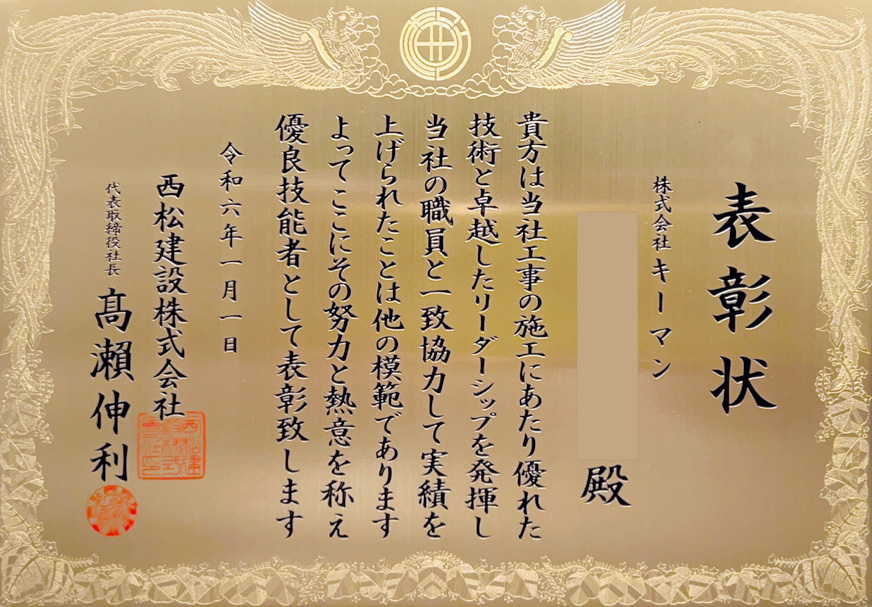 表彰状
株式会社 キーマン
殿
貴方は当社工事の施工にあたり優れた
技術と卓越したリーダーシップを発揮し
当社の職員と一致協力して実績を
上げられたことは他の模範であります
よってここにその努力と熱意を称え
優良技能者として表彰致します
令和六年一月一日
西松建設株式会社
代表取締役社長 髙瀬伸利